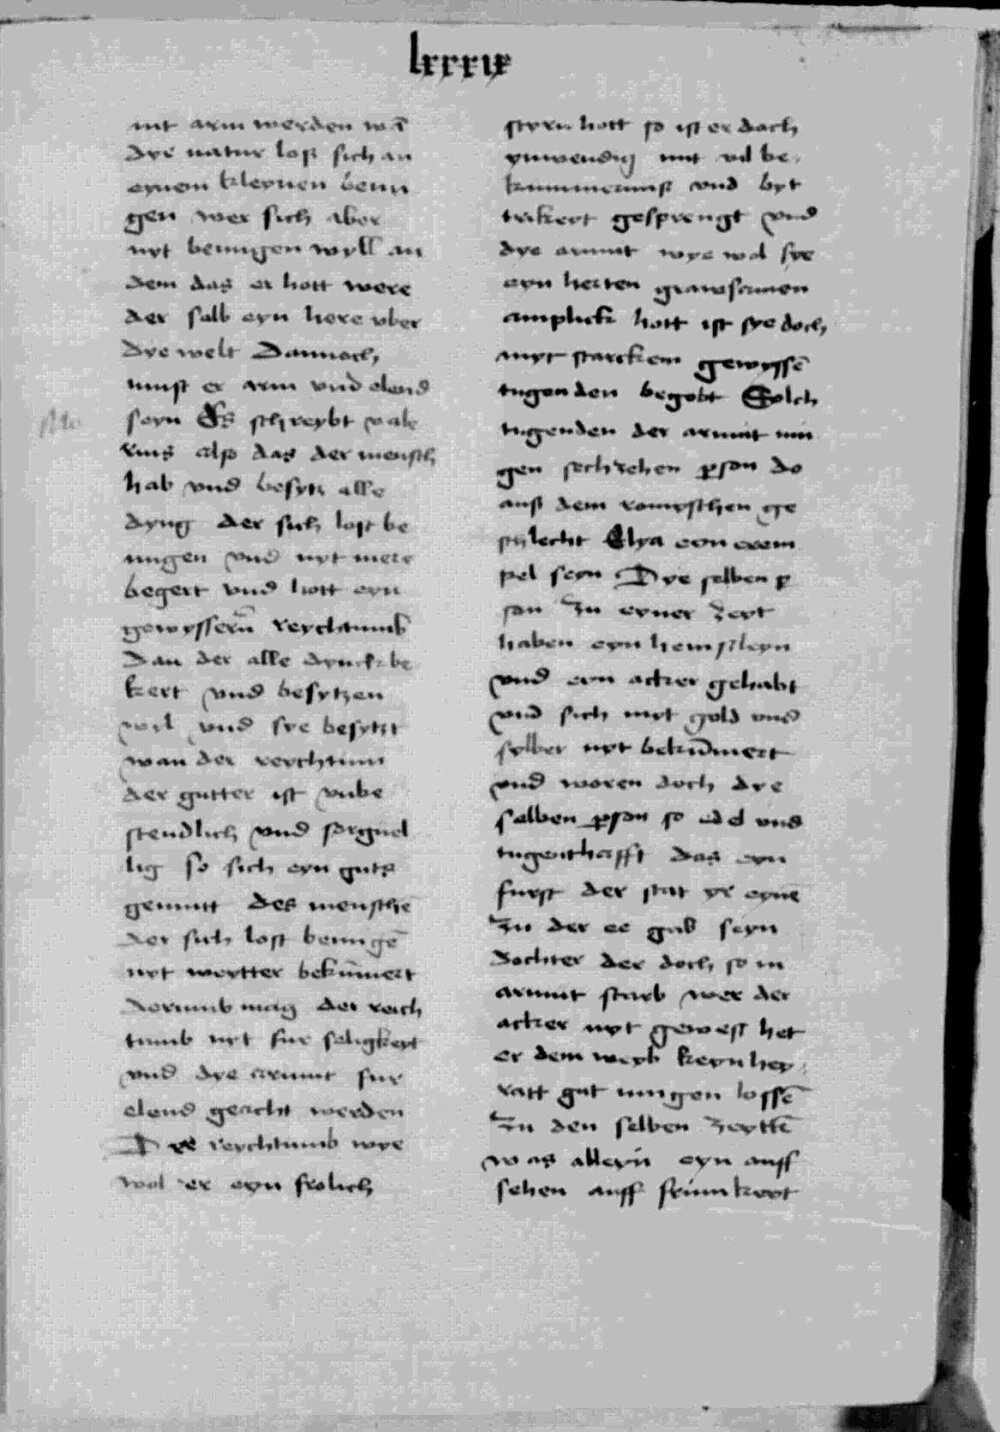 lxxxix
nit arm werden wā
dye natur lost sich an
eynem kleynen benu
gen wer sich aber
nyt benugen wyll an
dem das er hott were
der selb eyn here vber
dye welt Dannoch
must er arm vnd elend
seyn Es schreybt vale
rius also das der mensch
hab vnd besytz alle
dyng der sich lost be
nugen vnd nyt mere
begert vnd hott eyn
gewyssern reychtumb
Dan der alle dynck be
kert vnd besytzen
wil vnd sye besytzt
wan der reychtum
der gutter ist vnbe
stendlich vnd sorguel
lig so sich eyn guts
gemutt des mensche
der sich lost benugē
nyt weytter bekūmert
dorumb mag der reich
tumb nyt fur seligkeyt
vnd dye armut fur
elend geacht werden
Dye reychtumb wye
wol er eyn frolich
styrn hott so ist er doch
ynwendig mit vil be
kummernus vnd byt
trikeyt gesprengt vnd
dye armut wye wol sye
eyn herten grawsamen
anplick hott ist sye doch
myt starckem gewyssē
tugenden begobt Solch
tugenden der armut mu
gen sechzehen ꝑson do
auß dem romyschen ge
schlecht Elya eyn exem
pel seyn Dye selben ꝑ
son zu eyner zeyt
haben eyn heusleyn
vnd eyn acker gehabt
vnd sich myt gold vnd
sylber nyt bekūmert
vnd woren doch dye
selben ꝑson so edel vnd
tugenthafft das eyn
furst der stat yr eynē
zu der ee gab seyn
dochter der doch so in
armut starb wer der
acker nyt gewest het
er dem weyb keyn hey
ratt gut mugen lossē
zu den selben zeyttē
was alleyn eyn auff
sehen auff frumkeyt